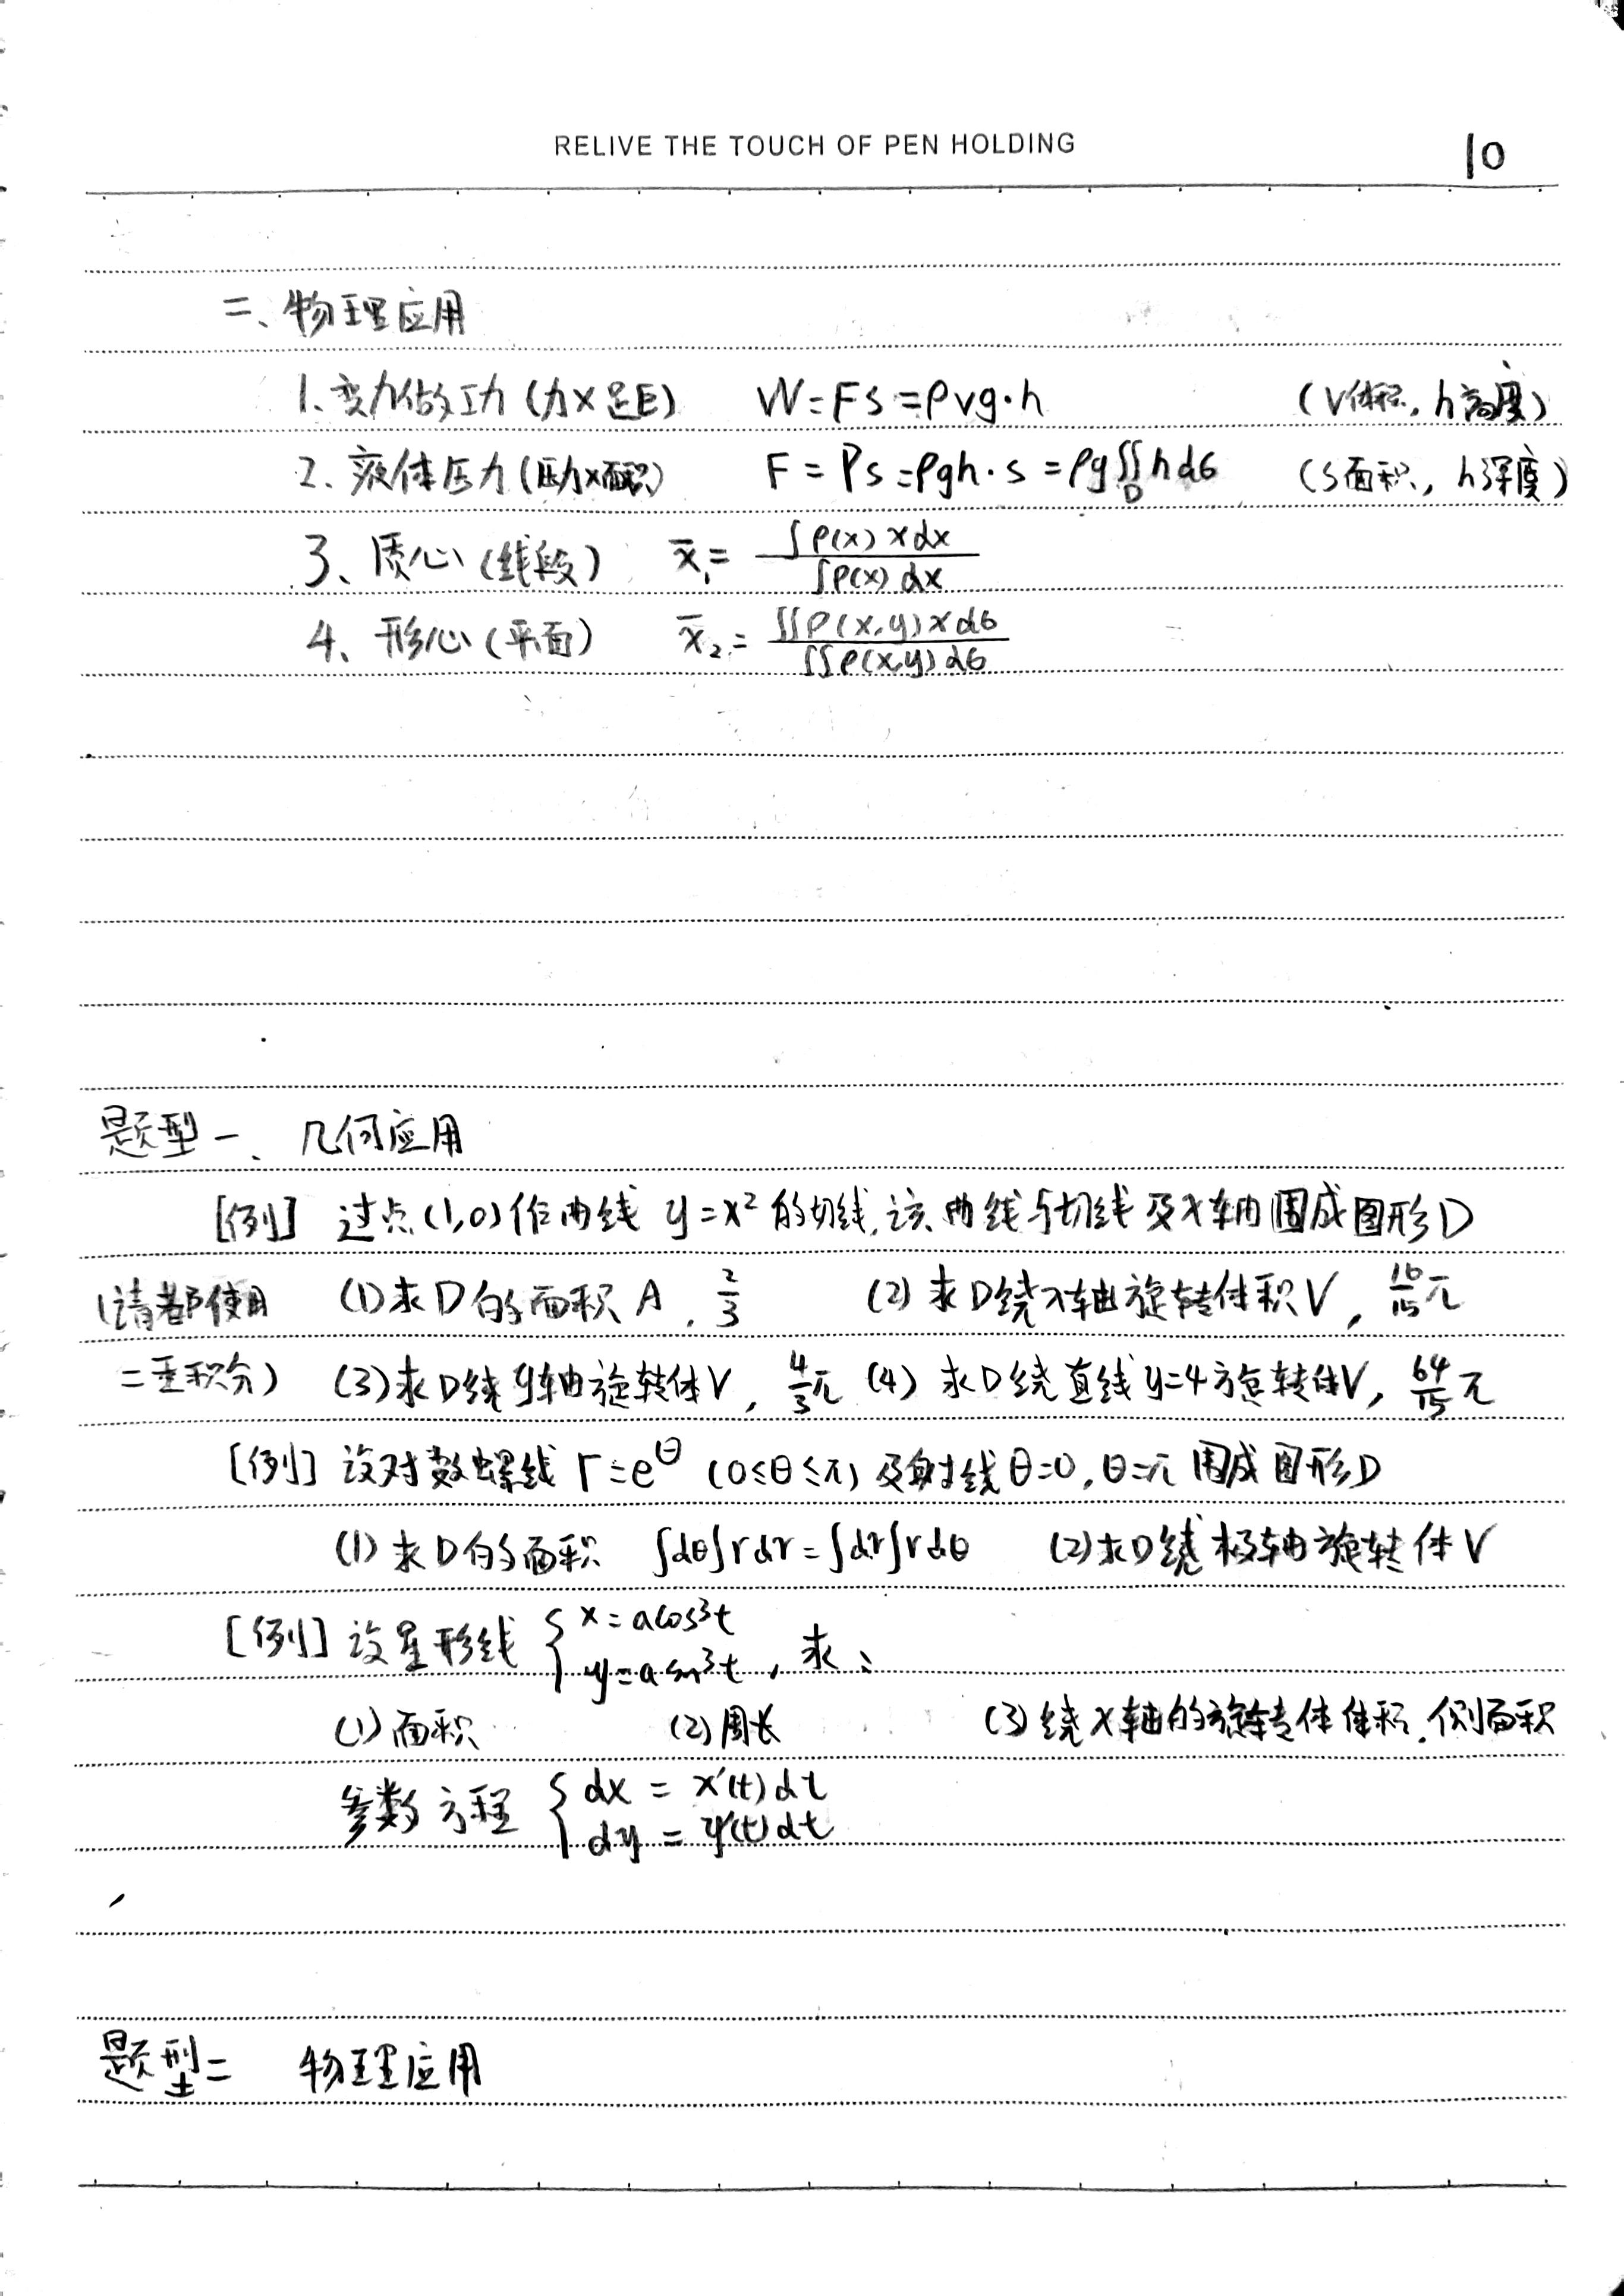 RELIVE THE TOUCH OF PEN HOLDING
10
二、物理应用
1、变力做功(力×距) W=Fs=ρvg·h (V体积, h高度)
2、液体压力(压力×面积) F=Ps=ρgh·s=ρg∬_D h dσ (S面积, h深度)
3、质心(线段) x̄₁= ∫ρ(x)xdx / ∫ρ(x)dx
4、形心(平面) x̄₂= ∬ρ(x,y)xdσ / ∬ρ(x,y)dσ
题型一、几何应用
[例] 过点(1,0)作曲线 y=x² 的切线,该曲线与切线及x轴围成图形D
(请都使用 (1)求D的面积A, 2/3 (2)求D绕x轴旋转体积V, 16/15 π
二重积分) (3)求D绕y轴旋转体V, 4/3 π (4)求D绕直线y=4旋转体V, 64/15 π
[例] 设对数螺线 r=e^θ (0≤θ≤π) 及射线θ=0,θ=π 围成图形D
(1)求D的面积 ∫dθ∫rdr=∫dr∫rdθ (2)求D绕极轴旋转体V
[例] 设星形线 { x=acos³t
y=asin³t , 求:
(1)面积 (2)周长 (3)绕x轴的旋转体体积,侧面积
参数方程 { dx = x'(t)dt
dy = y'(t)dt
题型二 物理应用